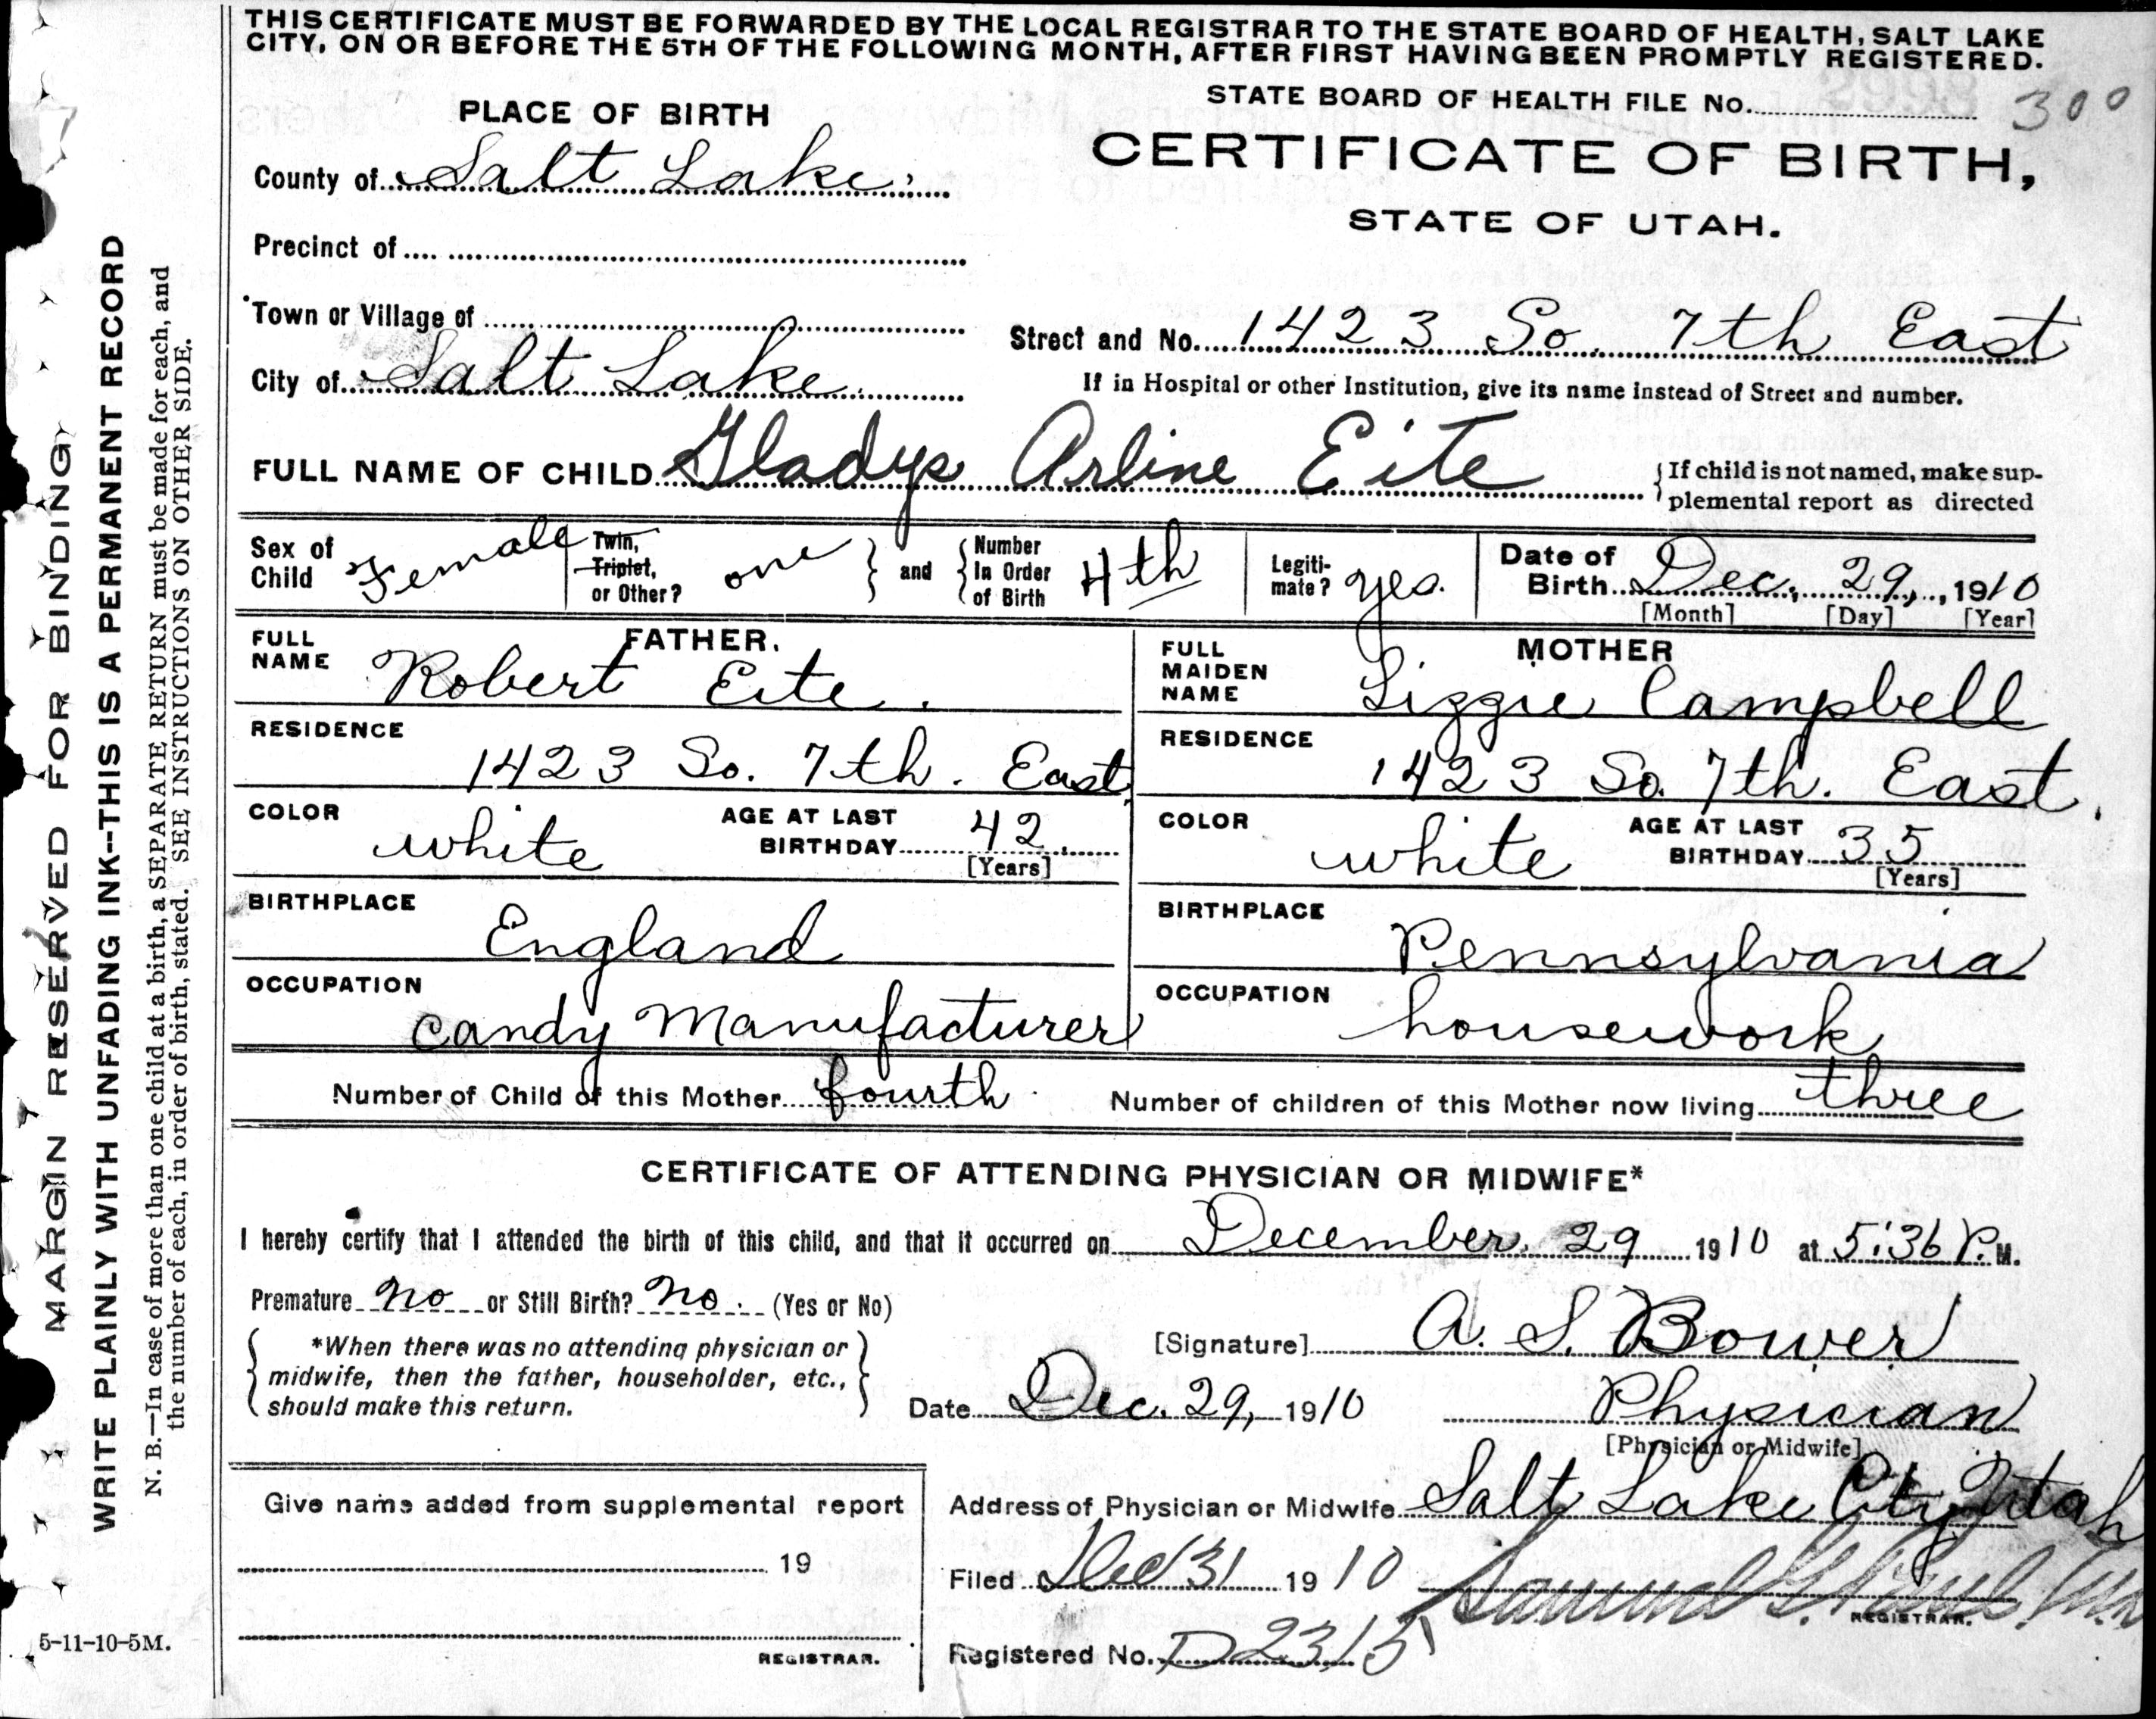 THIS CERTIFICATE MUST BE FORWARDED BY THE LOCAL REGISTRAR TO THE STATE BOARD OF HEALTH, SALT LAKE
CITY, ON OR BEFORE THE 5TH OF THE FOLLOWING MONTH, AFTER FIRST HAVING BEEN PROMPTLY REGISTERED.
STATE BOARD OF HEALTH FILE No. 300
PLACE OF BIRTH
CERTIFICATE OF BIRTH,
STATE OF UTAH.
County of Salt Lake
Precinct of
Town or Village of
Street and No. 1423 So. 7th East
City of Salt Lake
If in Hospital or other Institution, give its name instead of Street and number.
FULL NAME OF CHILD Gladys Arline Eite
{If child is not named, make sup-
plemental report as directed
Sex of Child Female
Twin, Triplet, or Other? one
and
Number In Order of Birth 4th
Legiti-mate? yes.
Date of Birth Dec. 29, 1910
[Month] [Day] [Year]
FATHER.
FULL NAME Robert Eite.
RESIDENCE
1423 So. 7th. East
COLOR white
AGE AT LAST BIRTHDAY 42
[Years]
BIRTHPLACE
England
OCCUPATION
Candy Manufacturer
MOTHER
FULL MAIDEN NAME Lizzie Campbell
RESIDENCE
1423 So. 7th. East.
COLOR white
AGE AT LAST BIRTHDAY 35
[Years]
BIRTHPLACE
Pennsylvania
OCCUPATION
housework
Number of Child of this Mother fourth
Number of children of this Mother now living three
CERTIFICATE OF ATTENDING PHYSICIAN OR MIDWIFE*
I hereby certify that I attended the birth of this child, and that it occurred on December 29 1910 at 5:36 P.M.
Premature no or Still Birth? no. (Yes or No)
*When there was no attending physician or
midwife, then the father, householder, etc.,
should make this return.
[Signature] A. S. Bower
Date Dec. 29, 1910
Physician
[Physician or Midwife]
Give name added from supplemental report
19
REGISTRAR.
Address of Physician or Midwife Salt Lake City Utah
Filed Dec 31 1910 Samuel G. Paul
REGISTRAR.
Registered No. D2315
5-11-10-5M.
MARGIN RESERVED FOR BINDING
WRITE PLAINLY WITH UNFADING INK--THIS IS A PERMANENT RECORD
N. B.—In case of more than one child at a birth, a SEPARATE RETURN must be made for each, and
the number of each, in order of birth, stated. SEE INSTRUCTIONS ON OTHER SIDE.